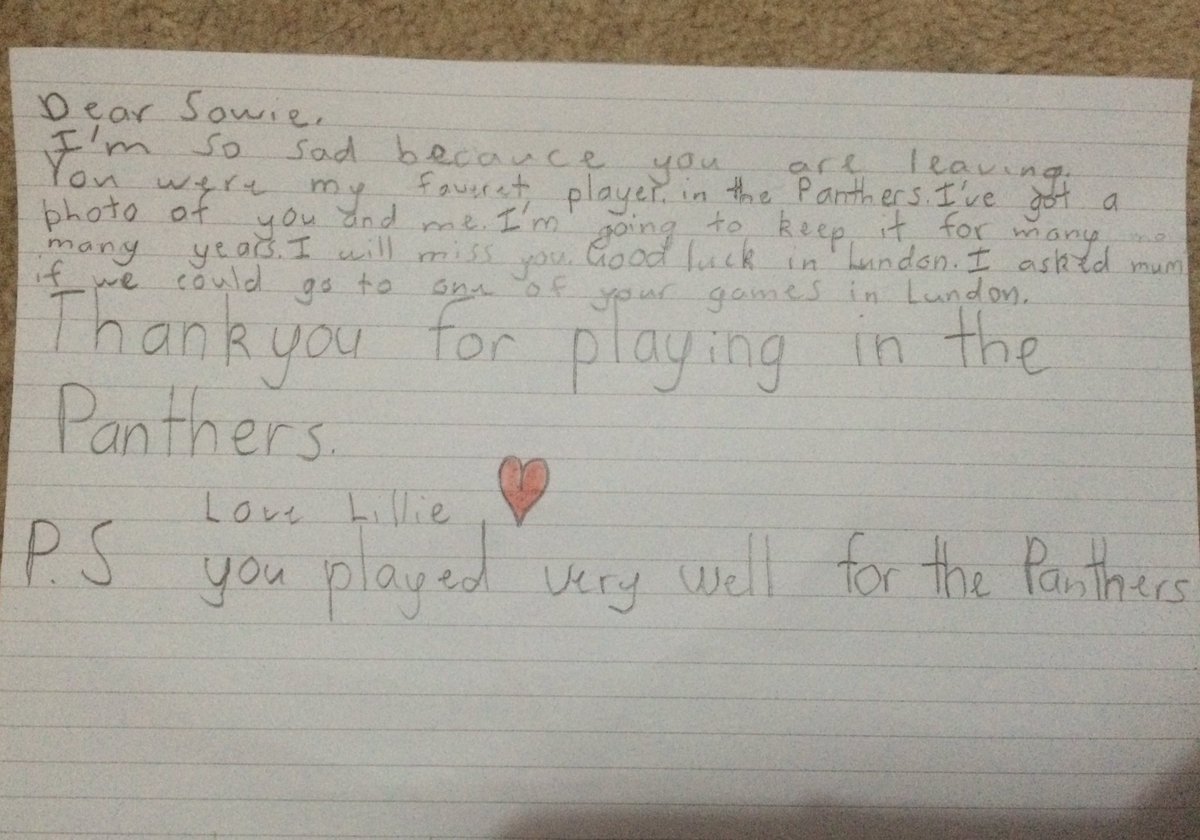 Dear Sowie.
I'm so sad becauce you are leaving.
You were my faveret player. in the Panthers. I've got a
photo of you and me. I'm going to keep it for many
many years. I will miss you. Good luck in Lundon. I asked mum
if we could go to one of your games in Lundon.
Thankyou for playing in the
Panthers.
Love Lillie
P.S you played very well for the Panthers